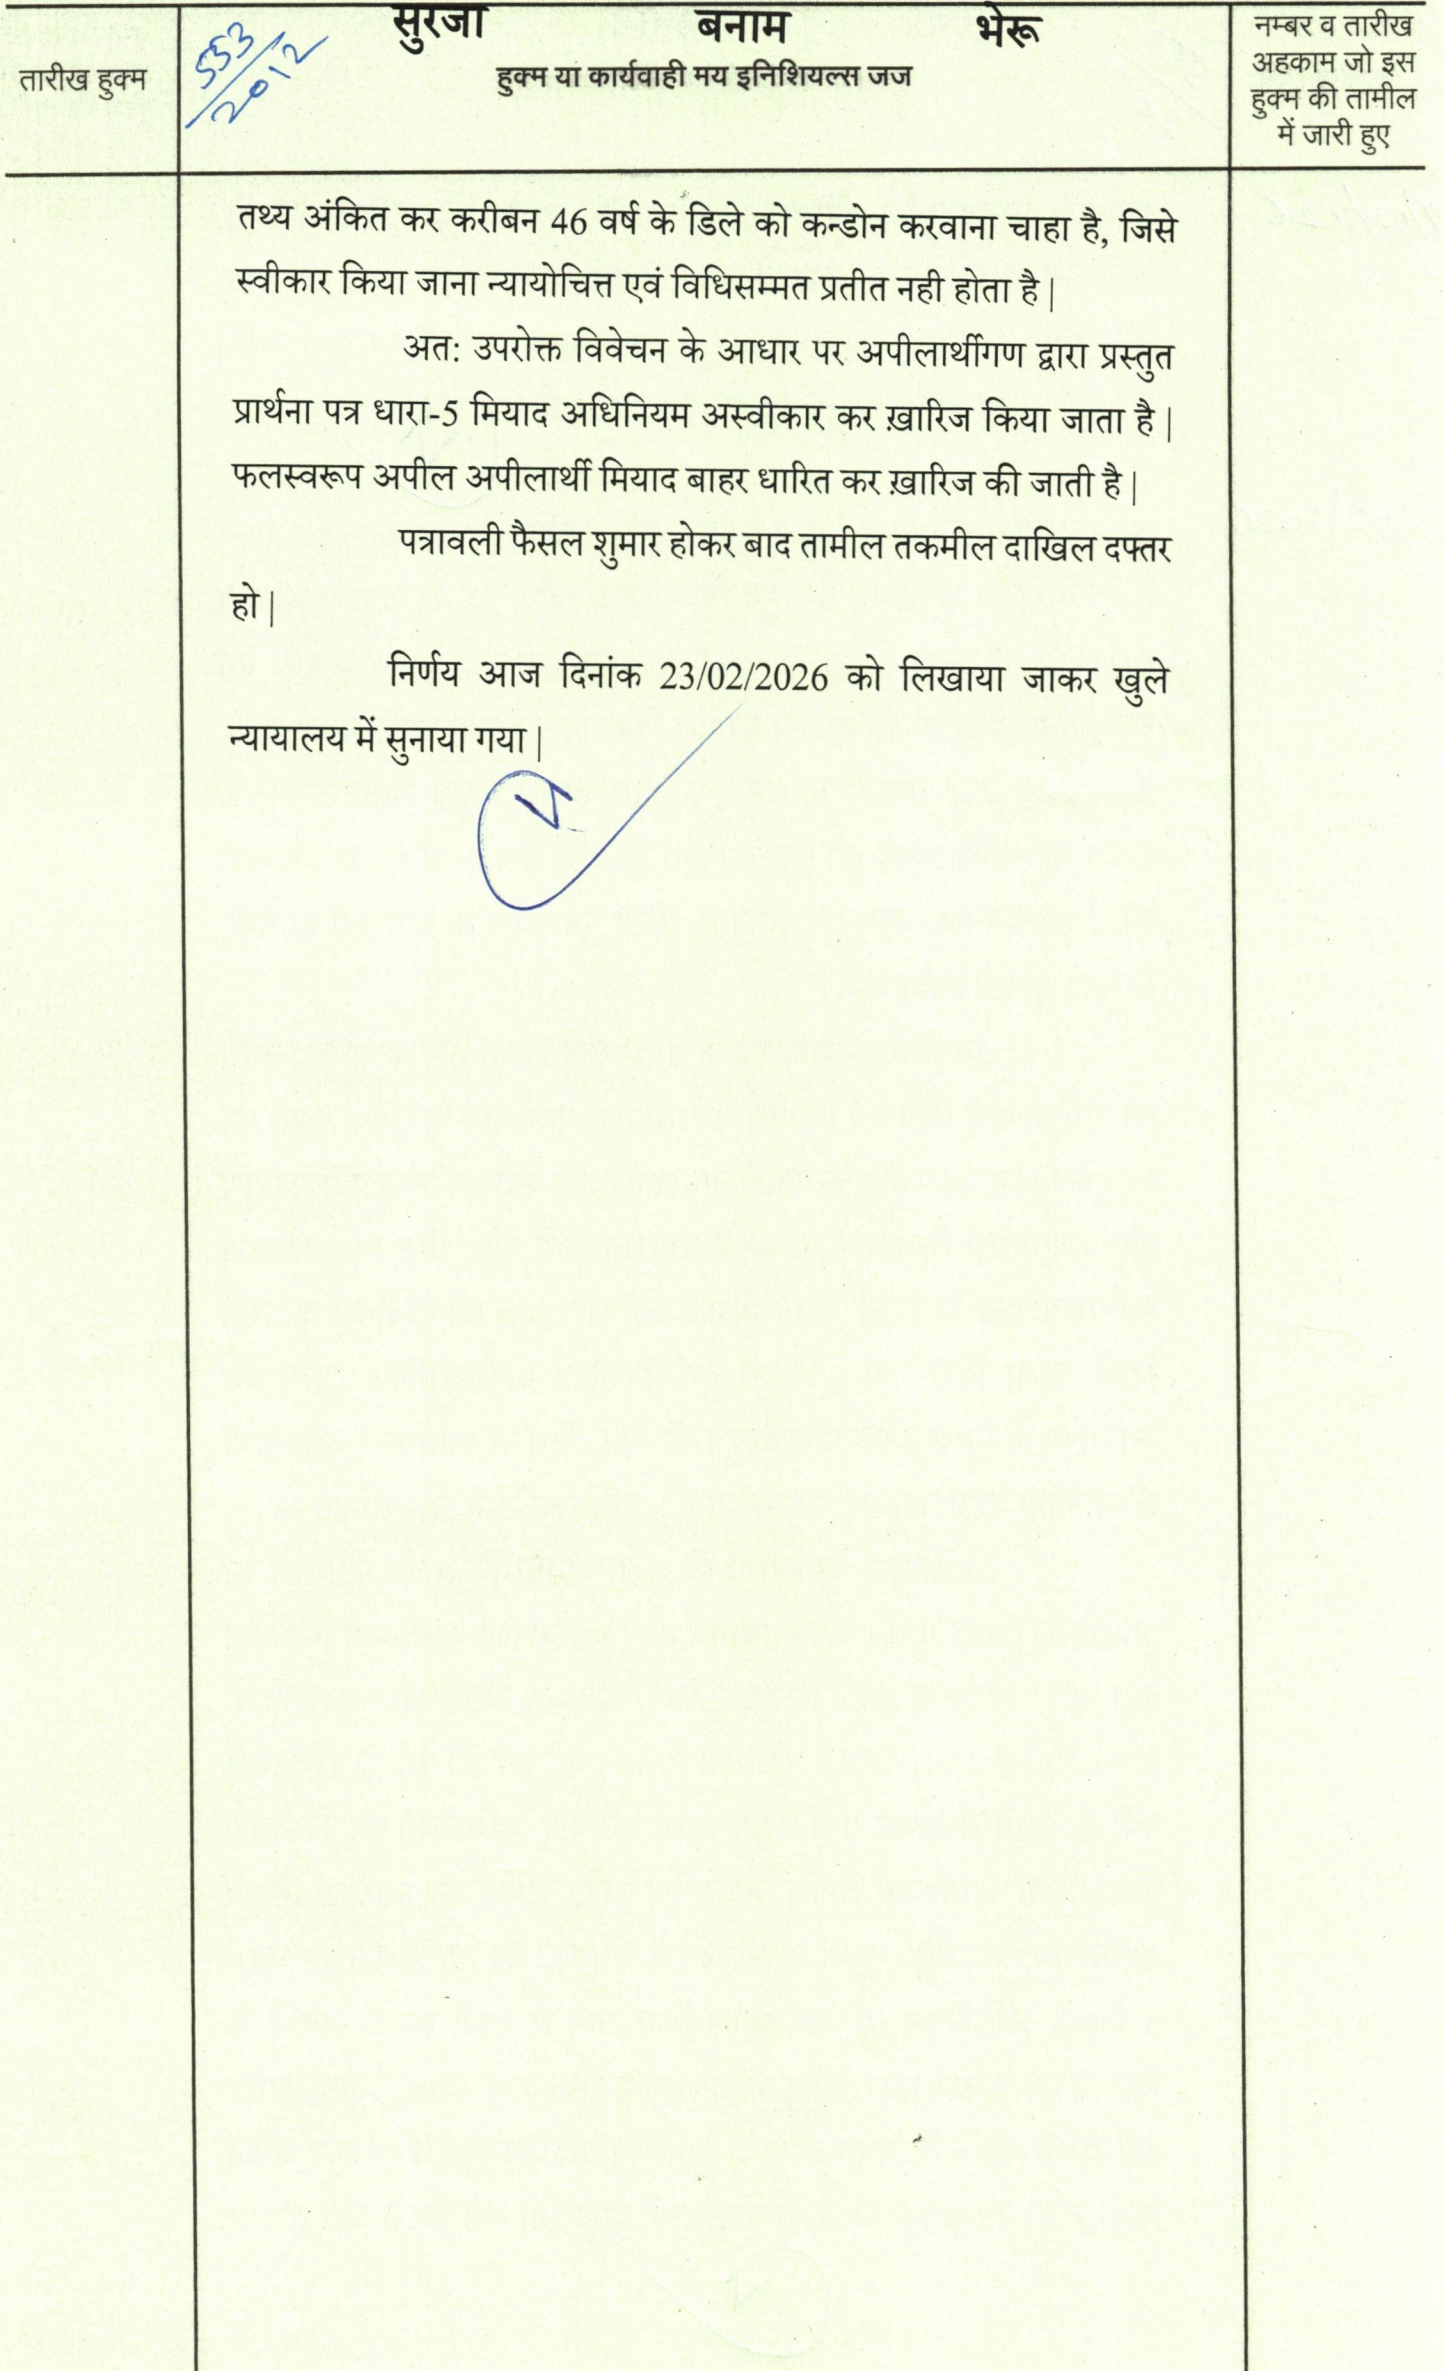 सुरजा बनाम भेरू
तारीख हुक्म
553/2012
हुक्म या कार्यवाही मय इनिशियल्स जज
नम्बर व तारीख
अहकाम जो इस
हुक्म की तामील
में जारी हुए
तथ्य अंकित कर करीबन 46 वर्ष के डिले को कन्डोन करवाना चाहा है, जिसे
स्वीकार किया जाना न्यायोचित्त एवं विधिसम्मत प्रतीत नही होता है|
अत: उपरोक्त विवेचन के आधार पर अपीलार्थीगण द्वारा प्रस्तुत
प्रार्थना पत्र धारा-5 मियाद अधिनियम अस्वीकार कर ख़ारिज किया जाता है|
फलस्वरूप अपील अपीलार्थी मियाद बाहर धारित कर ख़ारिज की जाती है|
पत्रावली फैसल शुमार होकर बाद तामील तकमील दाखिल दफ्तर
हो|
निर्णय आज दिनांक 23/02/2026 को लिखाया जाकर खुले
न्यायालय में सुनाया गया|